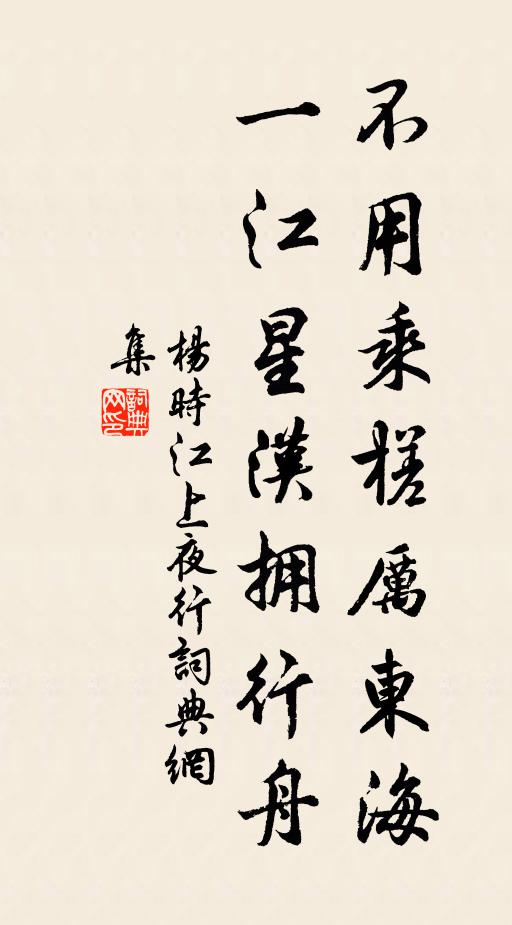 不用乘槎厲東海
一江星漢拥行舟
楊時江上夜行詞典網
集
詞典網印